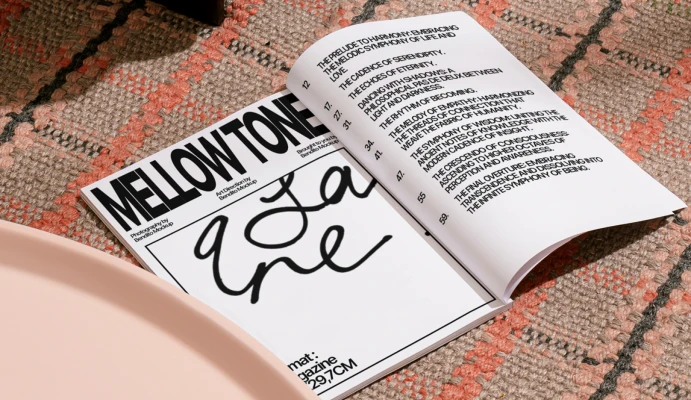 MELLOWTONE
Photography by
Bendito Mockup
Art Direction by
Bendito Mockup
Brought to you
Bendito Mockup
a La
une
mat:
gazine
29,7CM
12. THE PRELUDE TO HARMONY: EMBRACING
THE MELODIC SYMPHONY OF LIFE AND
LOVE.
17. THE CADENCE OF SERENDIPITY.
27. THE ECHOES OF ETERNITY.
31. DANCING WITH SHADOWS: A
PHILOSOPHICAL PAS DE DEUX BETWEEN
LIGHT AND DARKNESS.
34. THE RHYTHM OF BECOMING.
41. THE MELODY OF EMPATHY: HARMONIZING
THE THREADS OF CONNECTION THAT
WEAVE THE FABRIC OF HUMANITY.
47. THE SYMPHONY OF WISDOM: UNITING THE
ANCIENT NOTES OF KNOWLEDGE WITH THE
MODERN CADENCE OF INSIGHT.
55 THE CRESCENDO OF CONSCIOUSNESS:
ASCENDING TO HIGHEST OCTAVES OF
PERCEPTION AND AWARENESS.
59. THE FINAL OVERTURE: EMBRACING
TRANSCENDENCE AND DISSOLVING INTO
THE INFINITE SYMPHONY OF BEING.